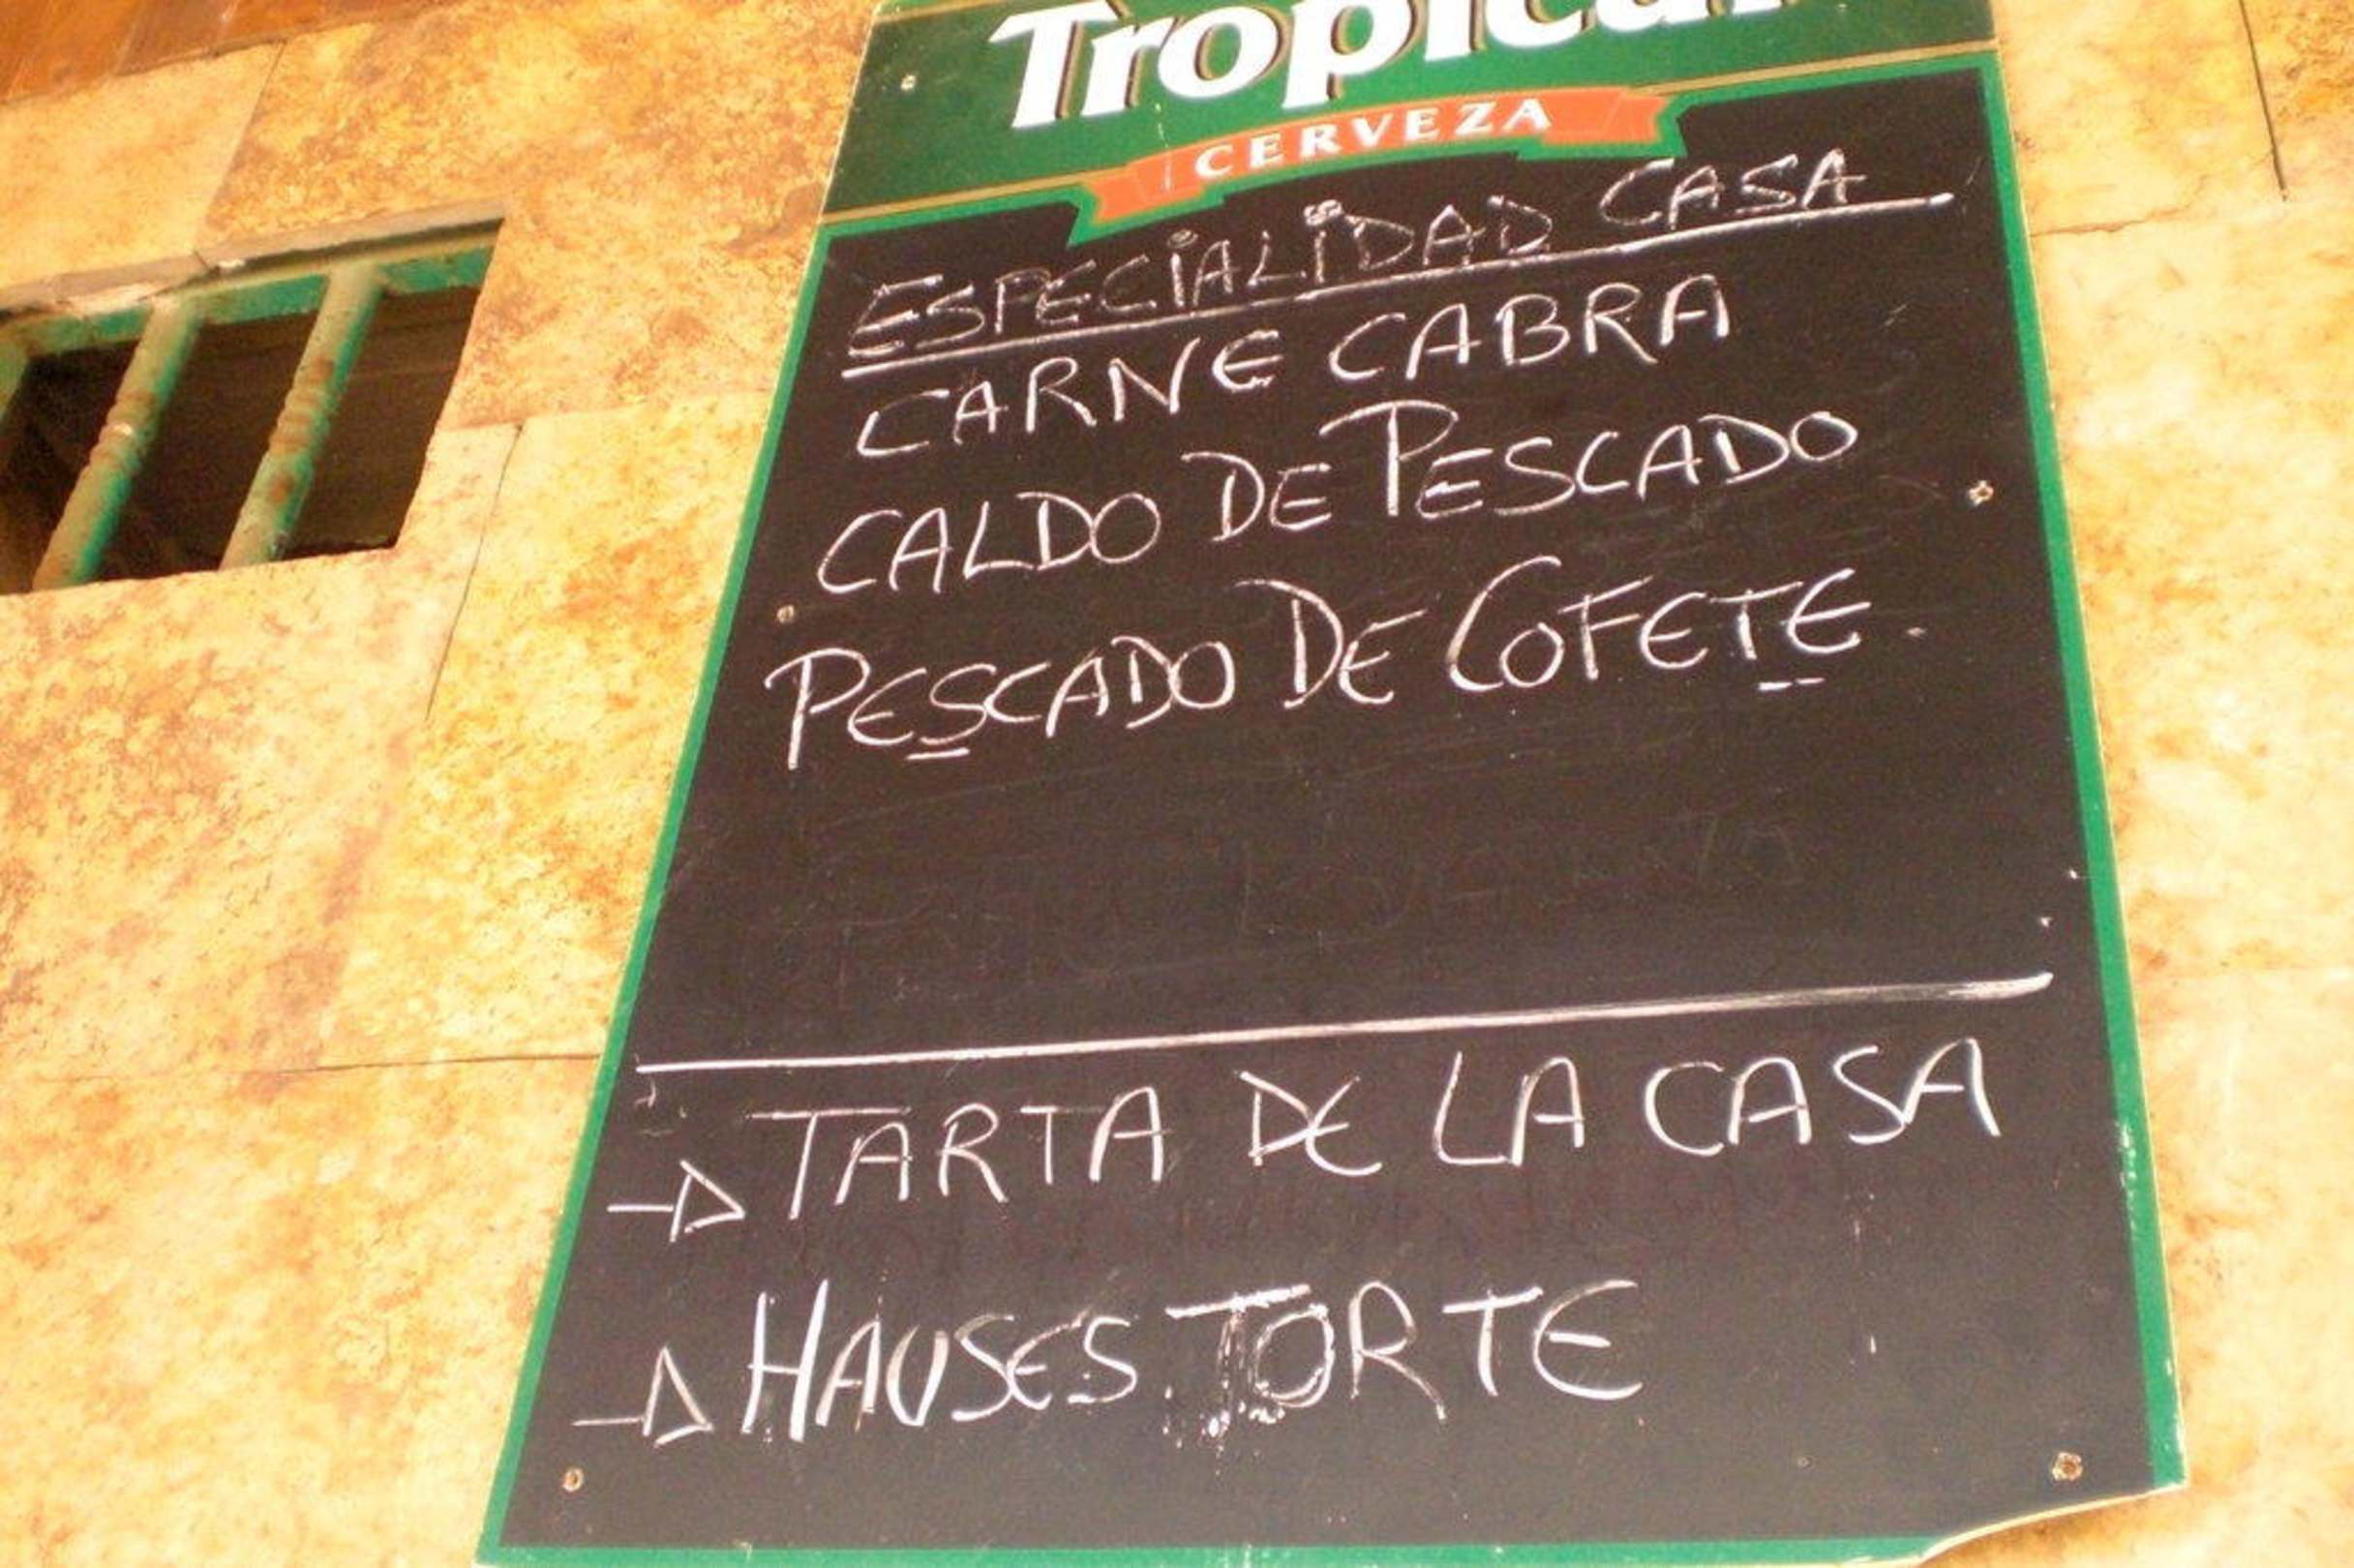 Tropical
CERVEZA
ESPECIALIDAD CASA
CARNE CABRA
CALDO DE PESCADO
PESCADO DE COFETE.
TARTA DE LA CASA
HAUSES TORTE